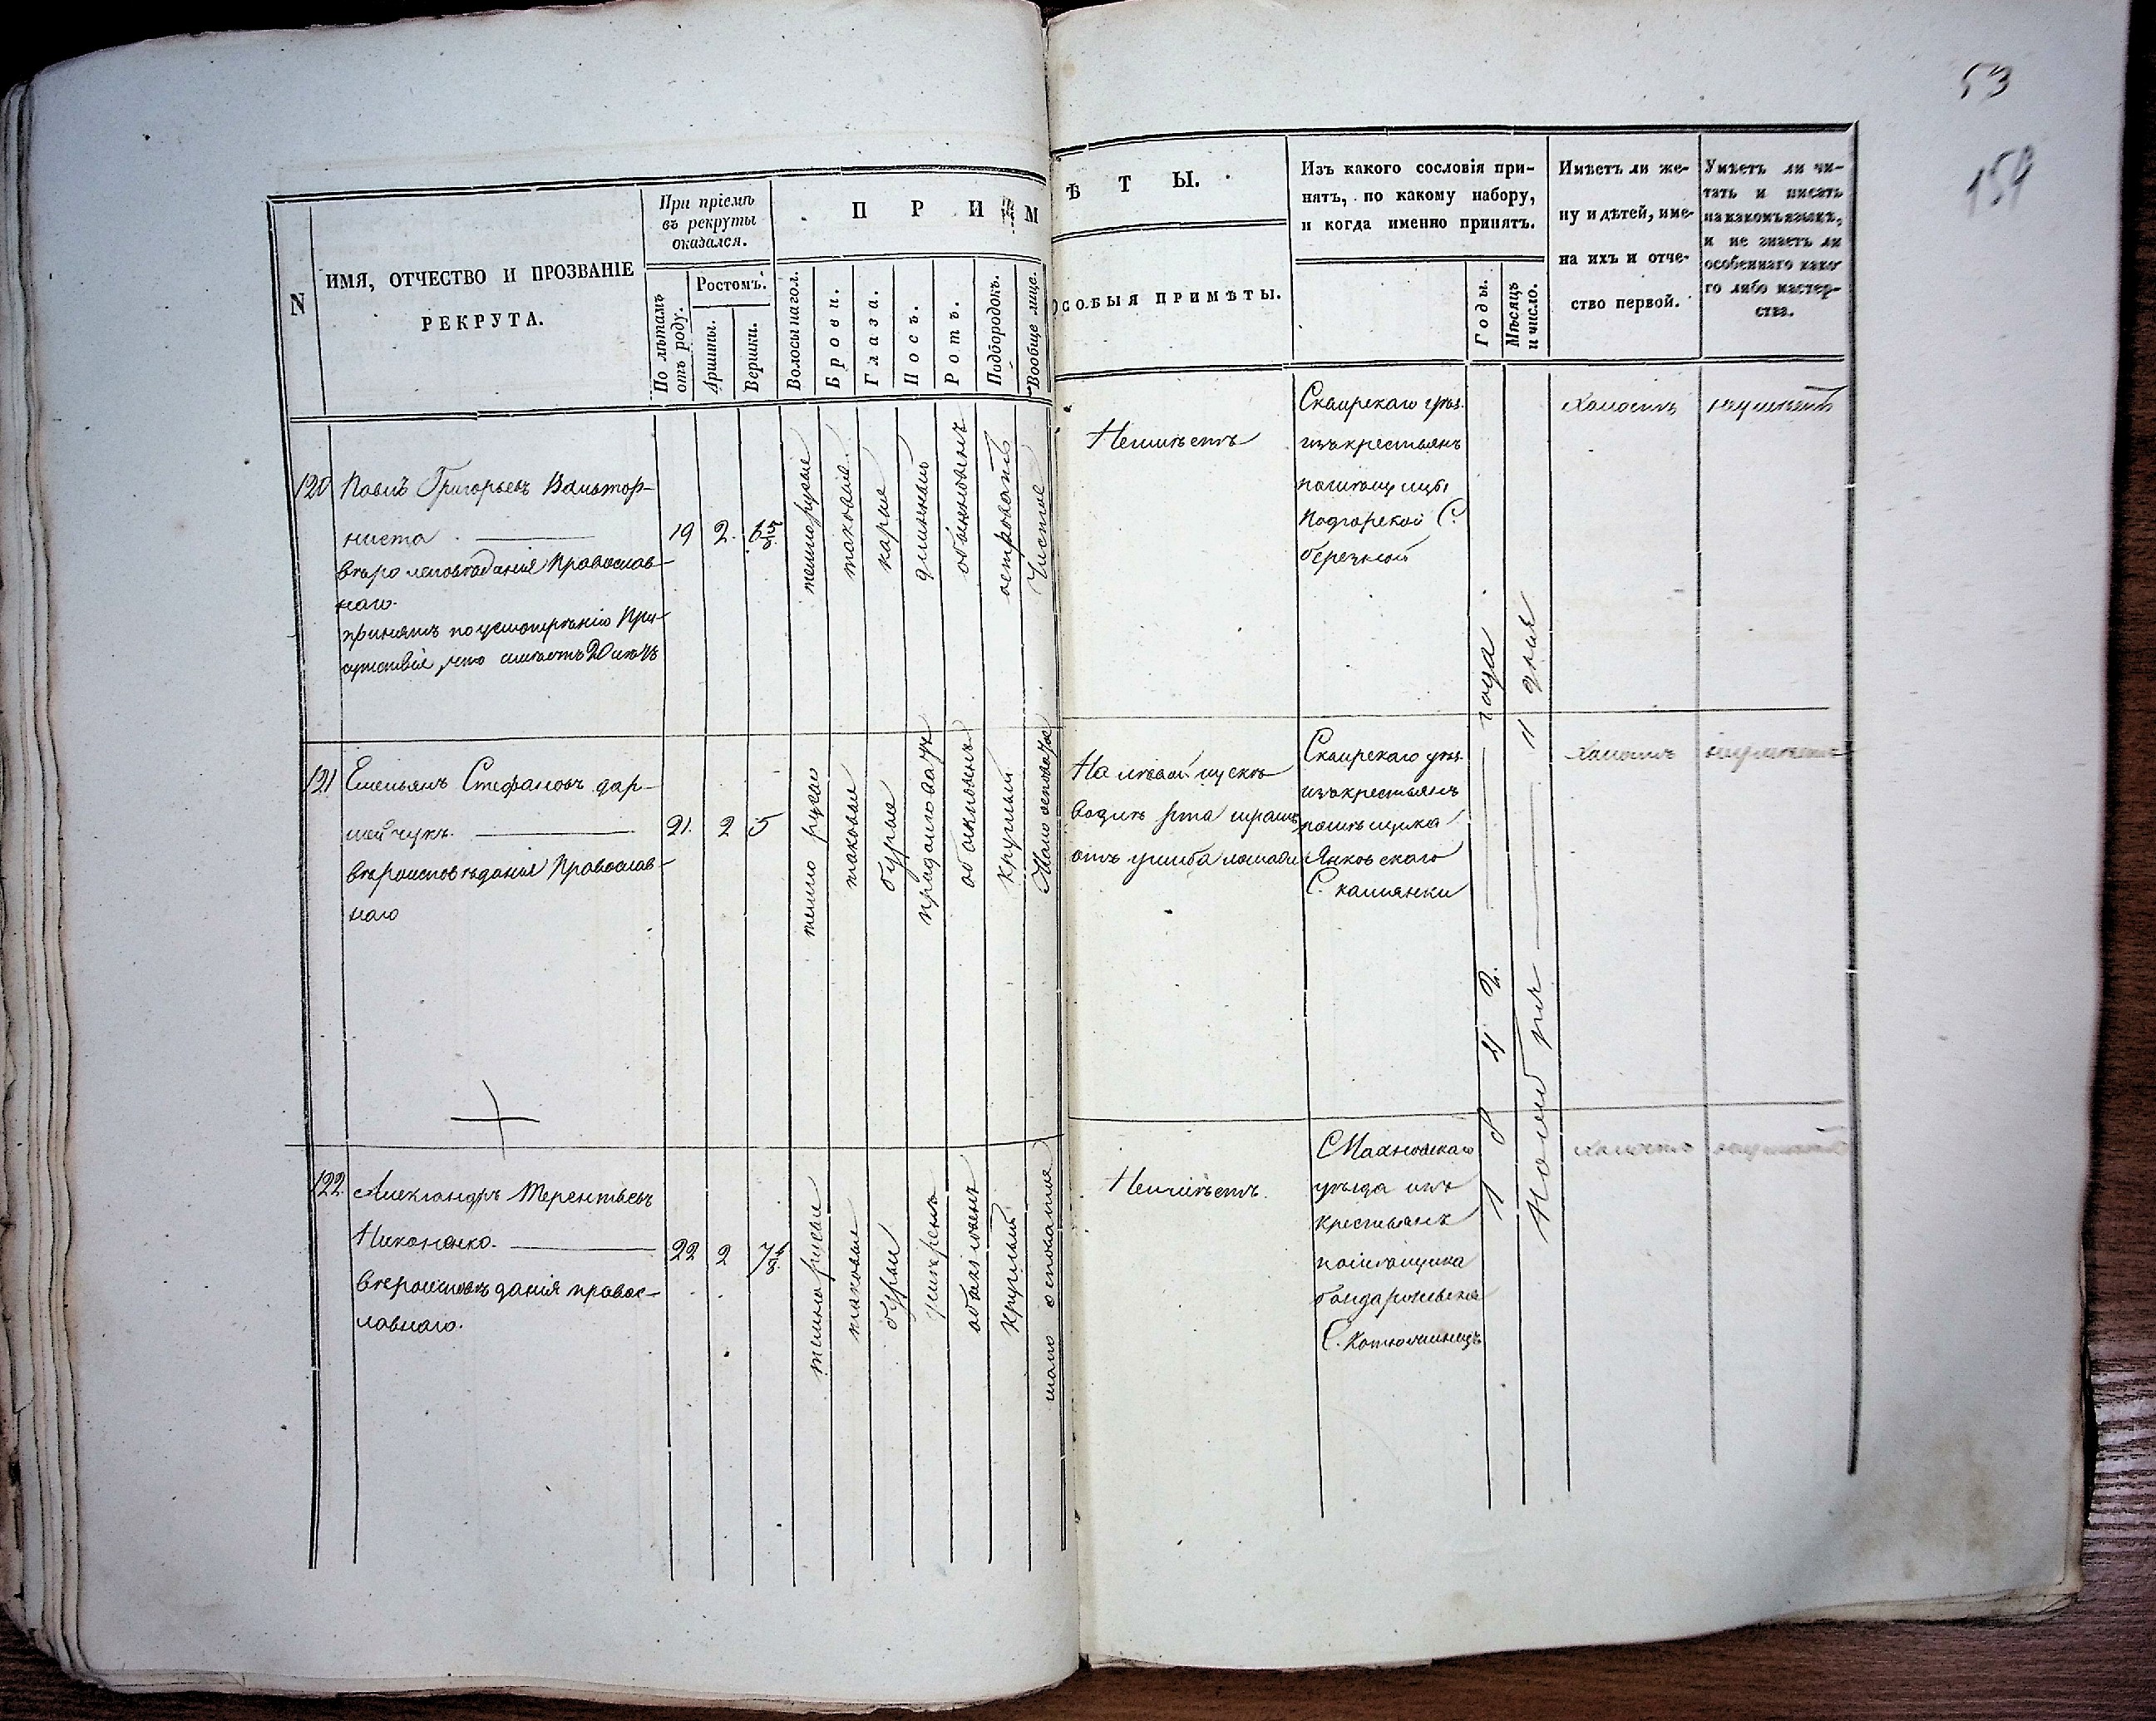 53
159
N
ИМЯ, ОТЧЕСТВО И ПРОЗВАНІЕ
РЕКРУТА.
При пріемѣ
въ рекруты
оказался.
По лѣтамъ
отъ роду.
Ростомъ.
Аршины.
Вершки.
П Р И М
Волосы на гол.
Брови.
Глаза.
Носъ.
Ротъ.
Подбородокъ.
Вообще лице.
Ѣ Т Ы.
ОСОБЫЯ ПРИМѢТЫ.
Изъ какого сословія при-
нятъ, по какому набору,
и когда именно принятъ.
Годы.
Мѣсяцъ
и число.
Имѣетъ ли же-
ну и дѣтей, име-
на ихъ и отче-
ство первой.
Умѣетъ ли чи-
тать и писать
на какомъ языкѣ,
и не знаетъ ли
особеннаго како-
го либо мастер-
ства.
120
Павелъ Григорьевъ Вальтор-
ниста
вѣроисповѣданія Православ-
наго.
принятъ по усмотрѣнію При-
сутствія, что имѣетъ 20 лѣтъ
19
2.
6 5/8
темнорусые
таковые
карые
длинный
обыкновенъ
островатый
Чистое
Неимѣетъ
Сквирскаго уѣз.
изъ крестьянъ
помѣщицы
Подгорской С.
бережной
холостъ
неумѣетъ
121
Емельянъ Стефановъ дар-
мойчукъ.
вѣроисповѣданія Православ-
наго
21.
2
5
темно русые
таковые
бурые
продолговатъ
обыкновенъ
круглый
Мало осповатое
На лѣвой щекѣ
возлѣ рта шрамъ
отъ ушиба лошади
Сквирскаго уѣз.
изъ крестьянъ
помѣщика
Янковскаго
С. каменки
холостъ
неумѣетъ
122
Александръ Терентьевъ
Никоненко.
вѣроисповѣданія правос-
лавнаго.
22
2
7 4/8
темно русые
таковые
бурые
умѣренъ
обыкновенъ
круглый
мало осповатое
Неимѣетъ.
Махновскаго
уѣзда изъ
крестьянъ
помѣщика
С.
холостъ
неумѣетъ
1842. года
Ноября 11 дня